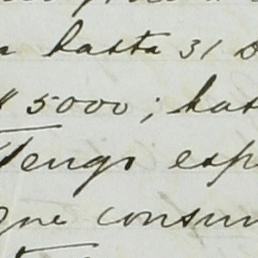 hasta 31
5000; has
Tengo esp
que consum